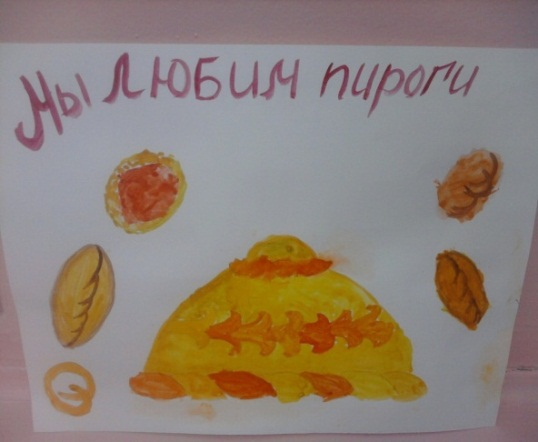 Мы ЛЮБИМ пироги